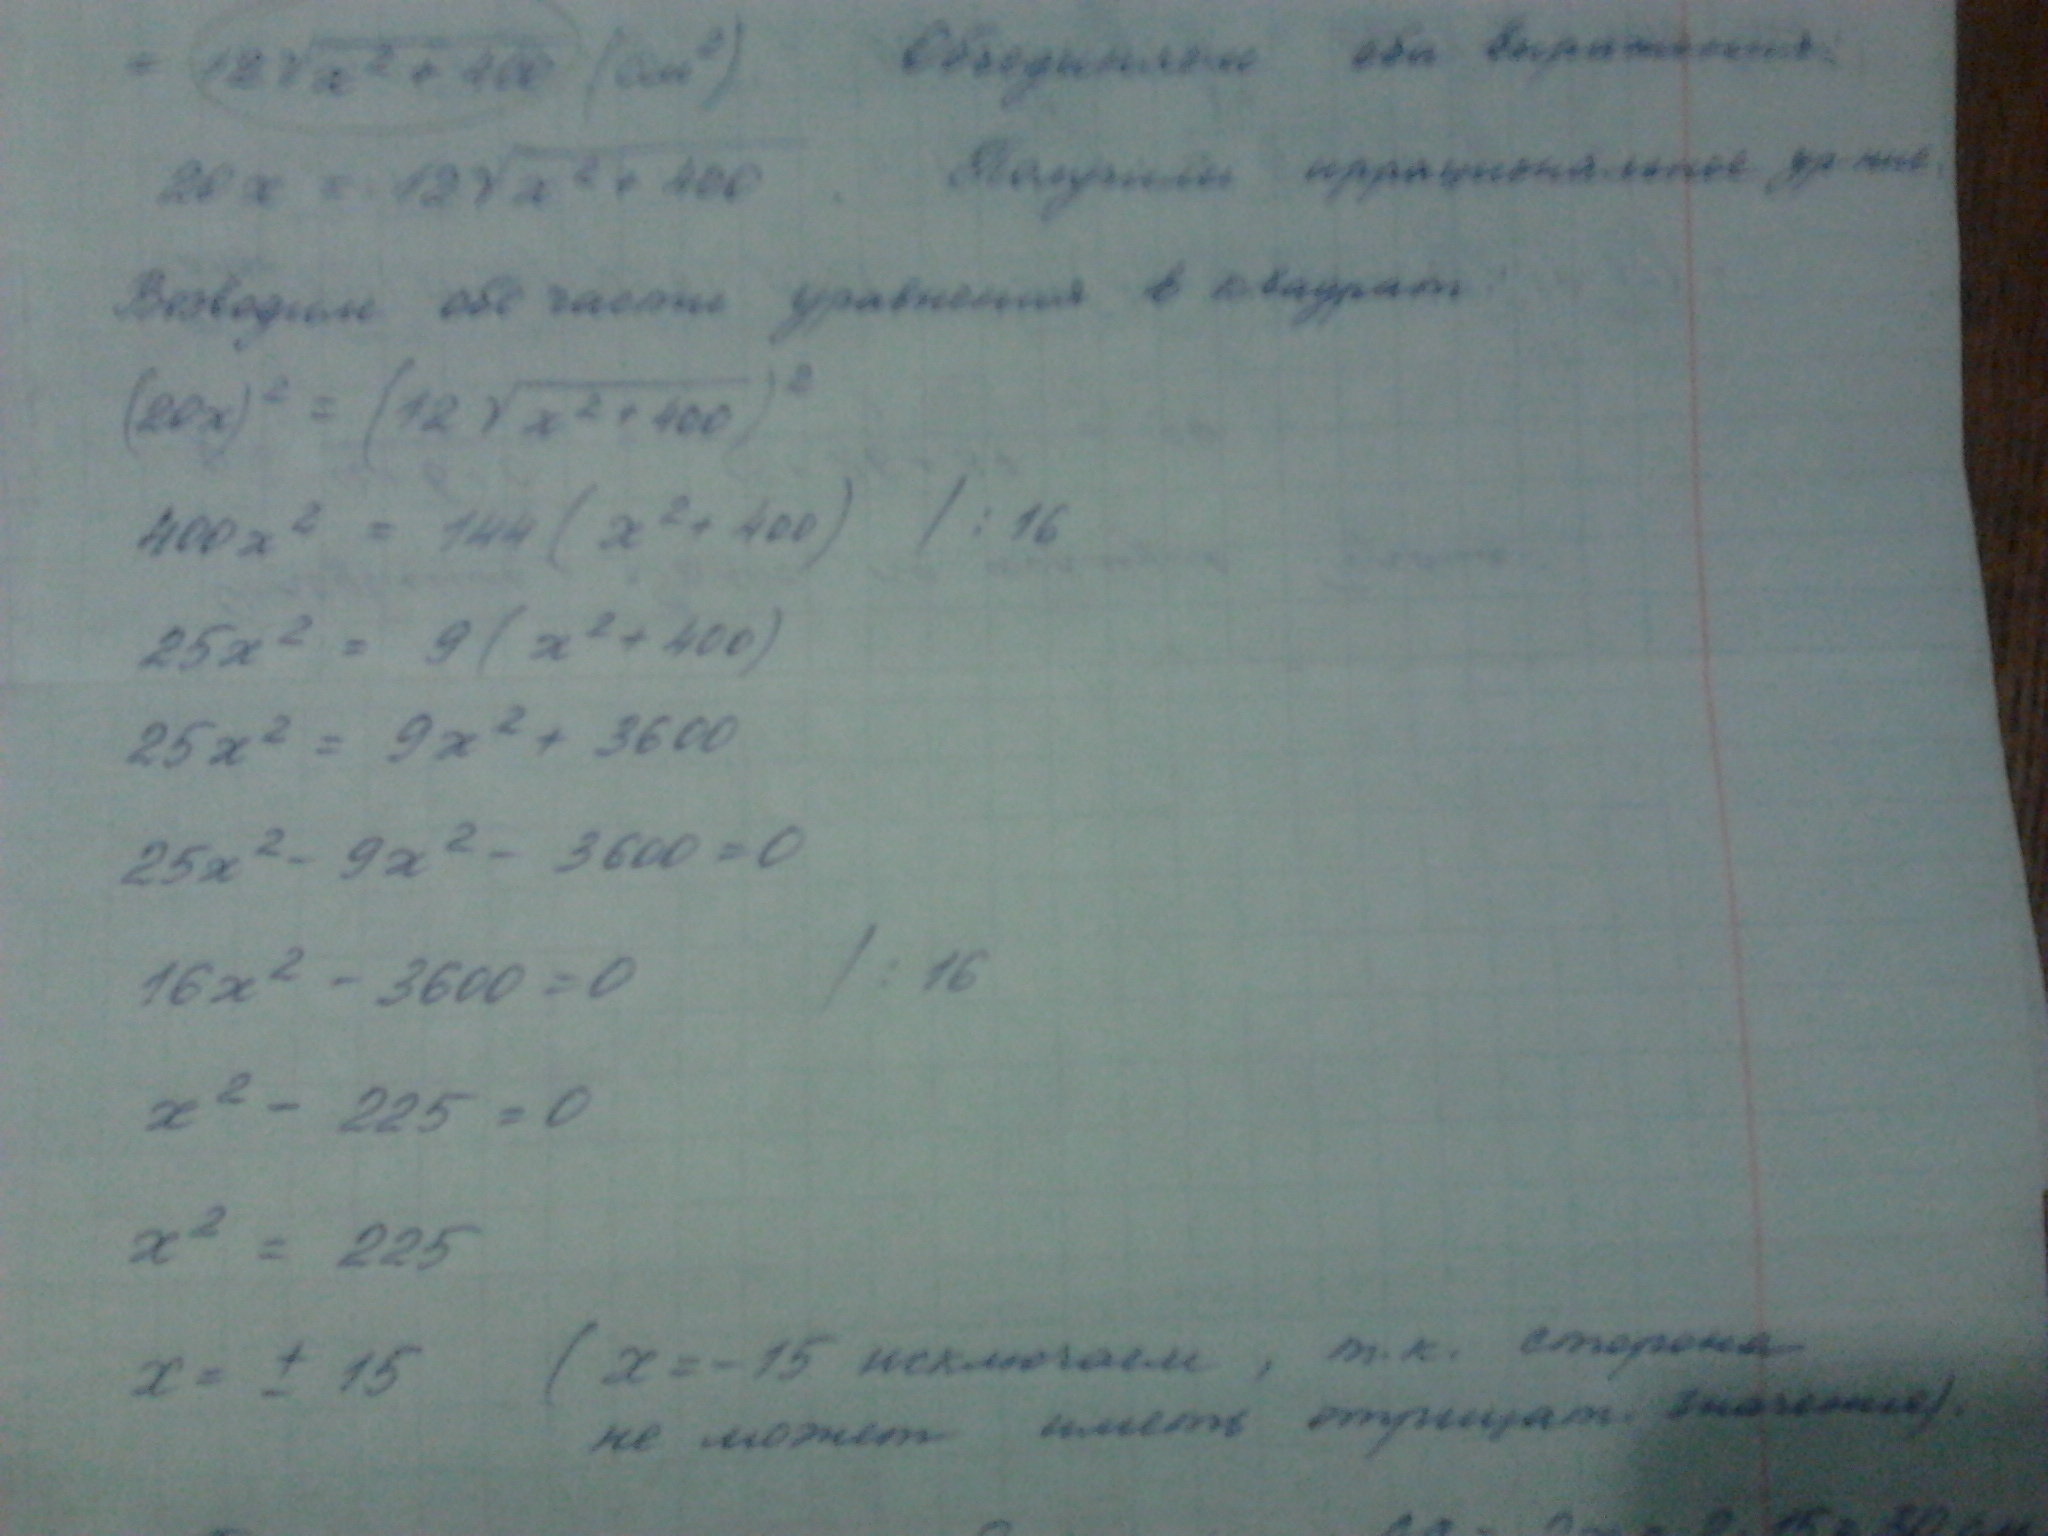 = 12√x² + 400 (см²). Объединяем оба выражения:
20x = 12√x² + 400. Получили иррациональное ур-ние.
Возводим обе части уравнения в квадрат:
(20x)² = (12√x² + 400)²
400x² = 144(x² + 400) / : 16
25x² = 9(x² + 400)
25x² = 9x² + 3600
25x² - 9x² - 3600 = 0
16x² - 3600 = 0 / : 16
x² - 225 = 0
x² = 225
x = ± 15 (x = -15 исключаем, т.к. сторона
не может иметь отрицат. значение).